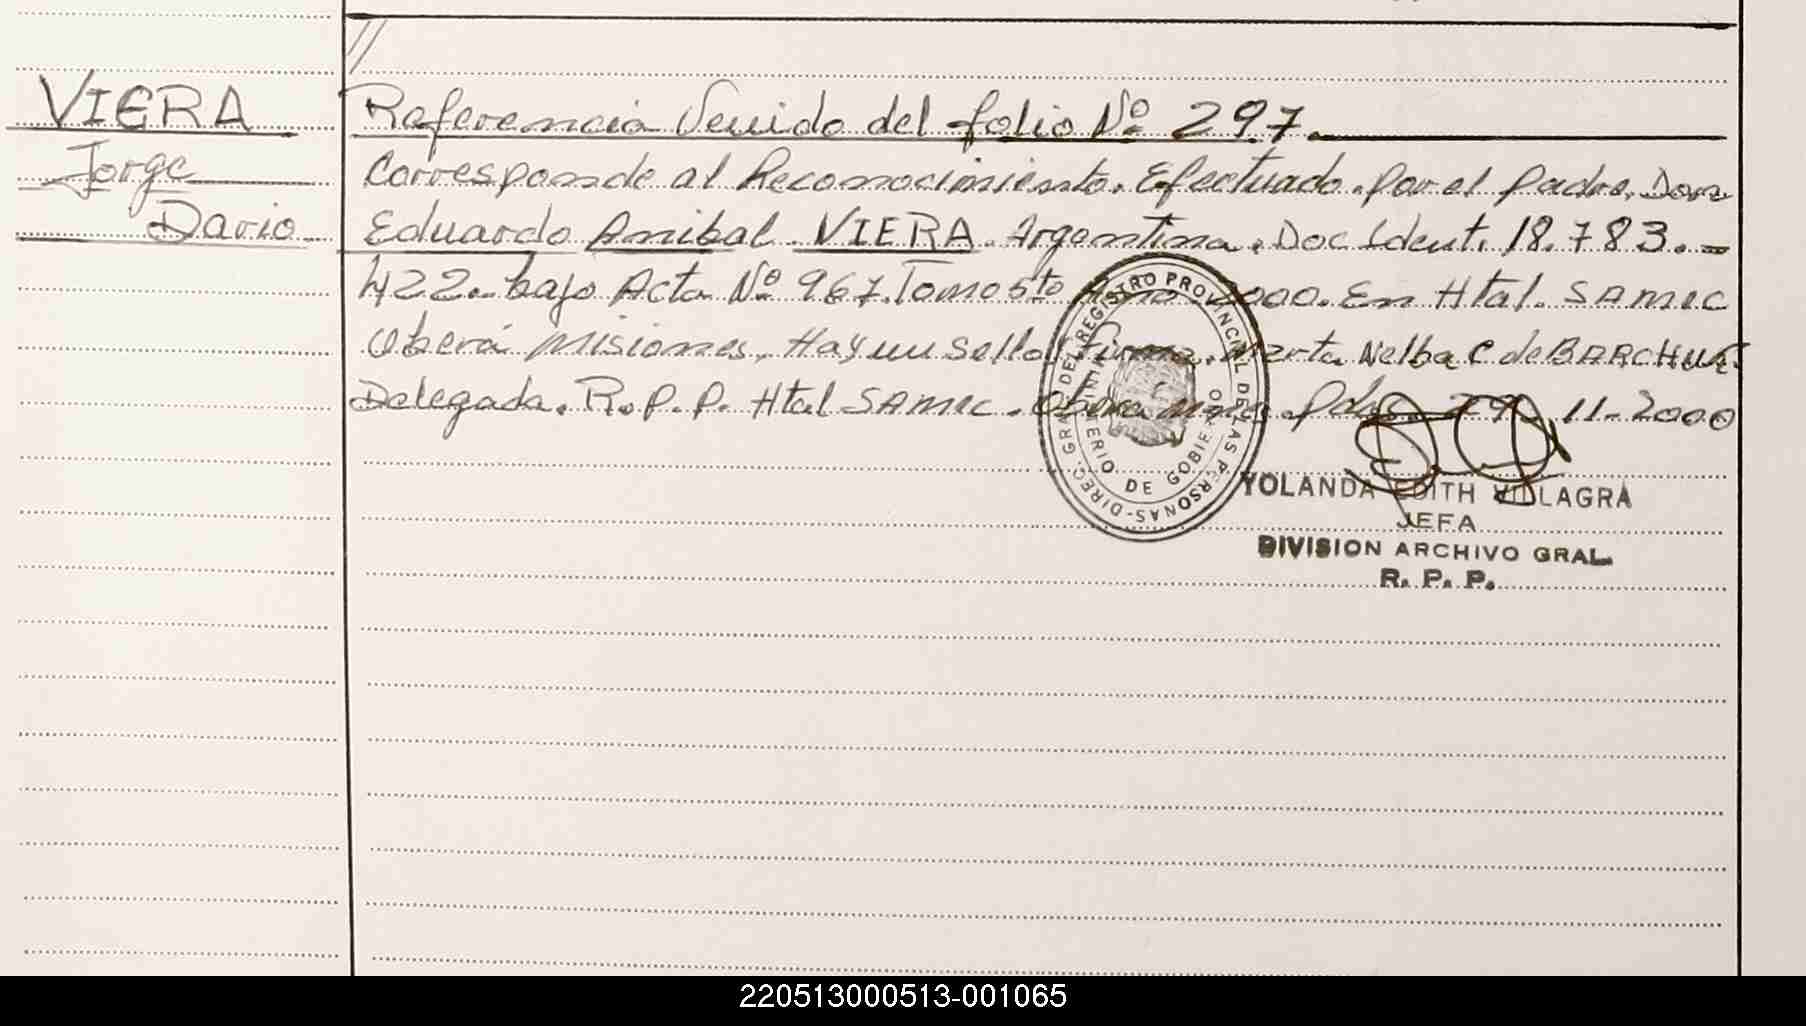 //
VIERA
Jorge
Dario
Referencia Venido del folio Nº 297.
Corresponde al Reconocimiento. Efectuado. por el padre. Don
Eduardo Anibal. VIERA. Argentina. Doc Ident. 18.783.-
422. bajo Acta Nº 967. Tomo 5to 2000. En Htal. SAMIC
Oberá Misiones, Hay un Sello Firma. Marta Nelba C de
Delegada. R.P.P. Htal SAMIC. Oberá Pdas. 29-11-2000
DIREC. GRAL DEL REGISTRO PROVINCIAL DE LAS PERSONAS-
MINISTERIO DE GOBIERNO
YOLANDA EDITH VILLAGRA
JEFA
DIVISION ARCHIVO GRAL.
R. P. P.
220513000513-001065